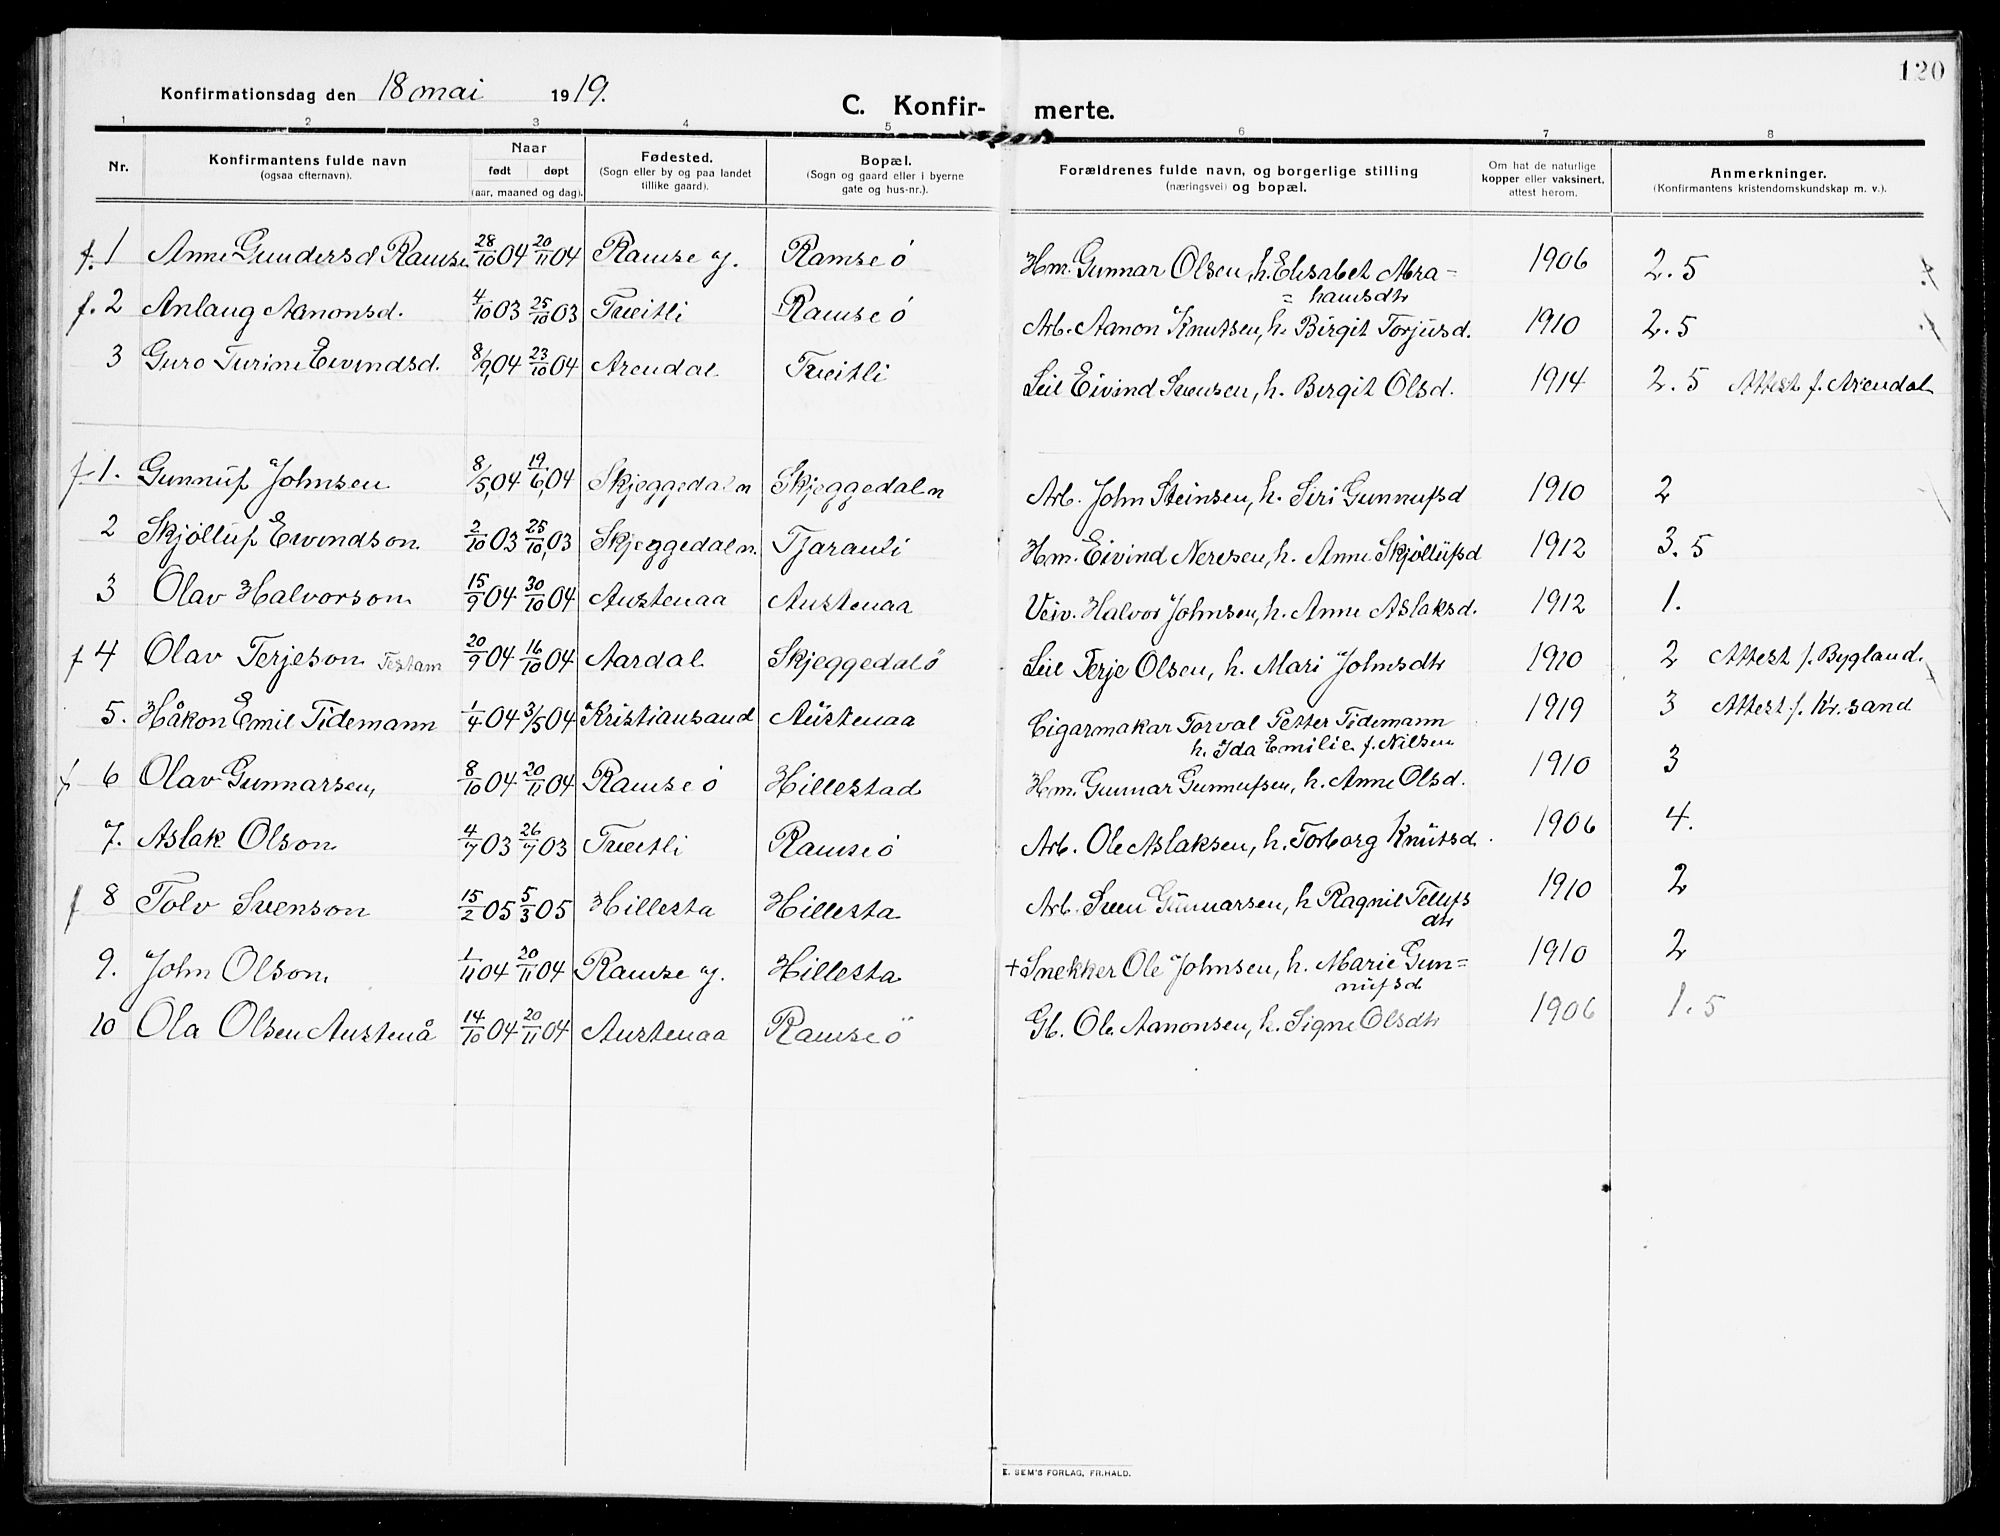 120
Konfirmationsdag den 18 mai 1919.
C. Konfir- merte.
1 2 3 4 5 6 7 8
Nr. Konfirmantens fulde navn (ogsaa efternavn). Naar født døpt (aar, maaned og dag). Fødested. (Sogn eller by og paa landet tillike gaard). Bopæl. (Sogn og gaard eller i byerne gate og hus-nr.). Forældrenes fulde navn, og borgerlige stilling (næringsvei) og bopæl. Om hat de naturlige kopper eller vaksinert, attest herom. Anmerkninger. (Konfirmantens kristendomskundskap m. v.).
f. 1 Anne Gundersd Ramse 28/10 04 20/11 04 Ramse y. Ramse ö Hm. Gunnar Olsen, h. Elisabet Abra= =hamsdtr 1906 2.5
f. 2 Anlaug Aanonsd. 4/10 03 25/10 03 Tveitli Ramse ö Arb. Aanon Knutsen, h. Birgit Torjusd. 1910 2.5
3 Guro Turine Eivindsd. 8/9 04 23/10 04 Arendal Tveitli Leil Eivind Svensen, h. Birgit Olsd. 1914 2.5 Attest f. Arendal
f 1. Gunnuf Johnsen 8/5 04 19/6 04 Skjeggedal n Skjeggedal n Arb. John Steinsen, h. Siri Gunnufsd 1910 2
2 Skjöllüf Eivindson 2/10 03 25/10 03 Skjeggedal n. Tjarauli Hm. Eivind Neresen, h. Anne Skjöllüfsd 1912 3.5
3 Olav Halvorson 15/9 04 30/10 04 Austenaa Austenaa Veiv. Halvor Johnsen, h. Anne Aslaksd. 1912 1.
f 4 Olav Terjeson Testam 20/9 04 16/10 04 Aardal Skjeggedal ö Leil Terje Olsen, h. Mari Johnsdtr 1910 2 Attest f. Bygland.
5. Håkon Emil Tidemann 1/4 04 3/5 04 Kristiansand Aüstenaa Cigarmakar Torval Petter Tidemann h. Ida Emilie f. Nilsen 1919 3 Attest f. Kr.sand
f 6 Olav Gunnarsen 8/10 04 20/11 04 Ramse ö Hillestad Hm. Gunnar Gunnufsen, h. Anne Olsd. 1910 3
7. Aslak Olson 4/7 03 26/7 03 Tveitli Ramse ö Arb. Ole Aslaksen, h. Torborg Knütsd. 1906 4.
f 8 Tolv Svenson 15/2 05 5/3 05 Hillesta Hillesta Arb. Sven Günnarsen, h Ragnil Tellefs dtr 1910 2
9. John Olson 1/11 04 20/11 04 Ramse y. Hillesta + Snekker Ole Johnsen, h. Marie Gun= nufsd 1910 2
10 Ola Olsen Austenå 14/10 04 20/11 04 Austenaa Ramse ö Gb. Ole Aanonsen, h. Signe Olsdtr 1906 1.5
E. SEM'S FORLAG, FR.HALD.